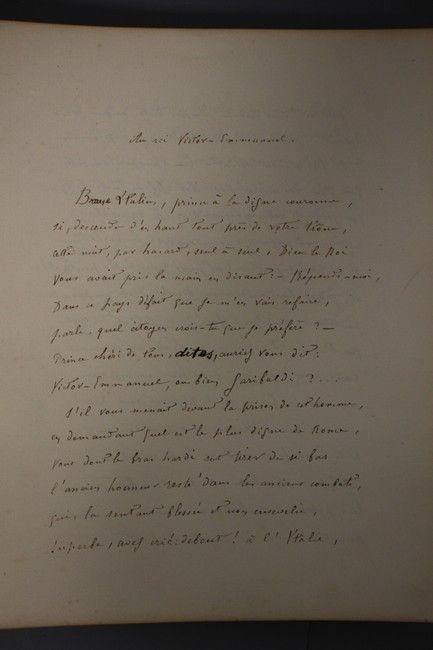 Au roi Victor-Emmanuel.
Brave Italien, prince à la digne couronne,
si, descendu d'en haut tout près de votre trône,
cette nuit, par hasard, seul à seul, Dieu le Roi
vous avait pris la main en disant: - Réponds-moi,
Dans ce pays défait que je m'en vais refaire,
parle, quel citoyen crois-tu que je préfère? -
Prince chéri de tous, dites, auriez vous dit:
Victor-Emmanuel, ou bien Garibaldi?...
S'il vous menait devant la prison de cet homme,
en demandant quel est le plus digne de Rome,
vous dont le bras hardi sut tirer de si bas
l'ancien honneur resté dans les anciens combats,
qui, la sentant blessée et non ensevelie,
superbe, avez crié: debout! à l'Italie,